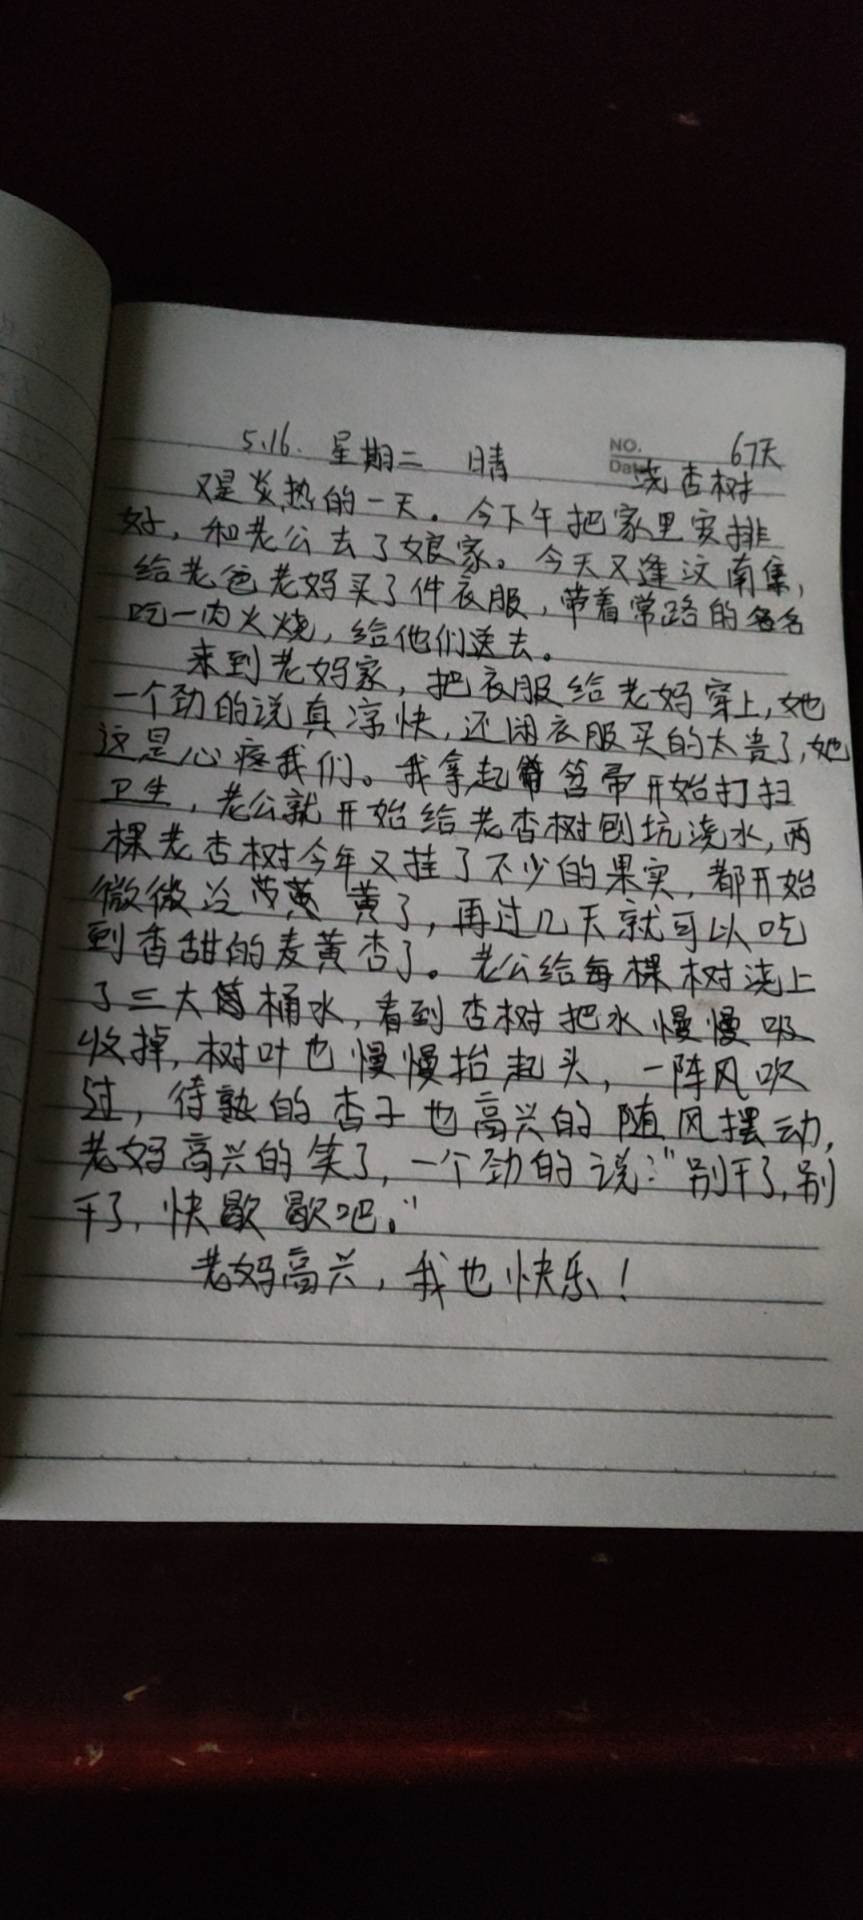 5.16. 星期二 晴 NO. 67天
Dat 浇杏树
又是炎热的一天。今下午把家里安排
好,和老公去了娘家。今天又逢汶南集,
给老爸老妈买了件衣服,带着常路的
吃一肉火烧,给他们送去。
来到老妈家,把衣服给老妈穿上,她
一个劲的说真凉快,还闲衣服买的太贵了,她
这是心疼我们。我拿起笤帚开始打扫
卫生,老公就开始给老杏树刨坑浇水,两
棵老杏树今年又挂了不少的果实,都开始
微微泛黄了,再过几天就可以吃
到香甜的麦黄杏了。老公给每棵树浇上
了三大桶水,看到杏树把水慢慢吸
收掉,树叶也慢慢抬起头,一阵风吹
过,待熟的杏子也高兴的随风摆动,
老妈高兴的笑了,一个劲的说:“别干了,别
干了,快歇歇吧。”
老妈高兴,我也快乐!